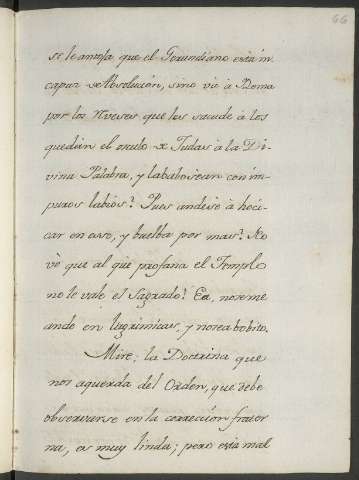 66
se le antoja que el Gerundiano está in
capaz de Absolución, sino vá à Roma
por los Nueses que les sacude à los
que dàn el osculo de Judas à la Di-
vina Palabra, y la babosean con im-
puros labios? Pues andese à hoci-
car en eso, y buelba por mas? No
vè que al que profana el Templo
no le vale el Sagrado? Ea, no se me
ande en lagrimicas, y no sea bobito.
Mire; la Doctrina que
nos aquerda del Orden, que debe
observarse en la corrección frater
na, es muy linda; pero està mal